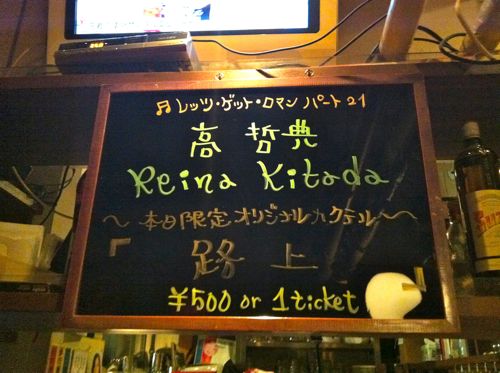 ♬ レッツ・ゲット・ロマン パート21
高 哲典
Reina Kitada
〜 本日限定オリジナルカクテル 〜
「路上
¥500 or 1ticket